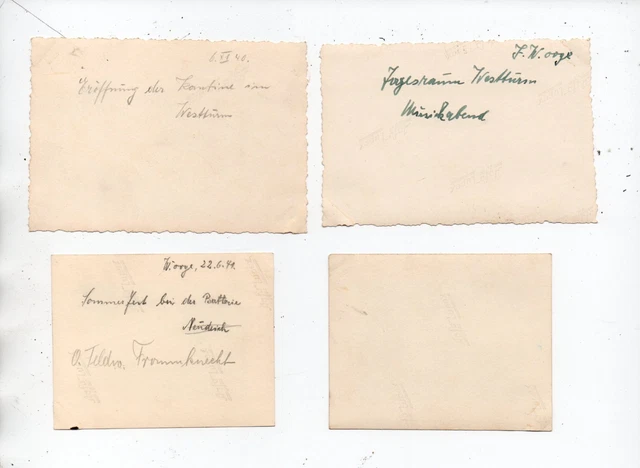 6. VI 40.
Eröffnung der Kantine im
Westturm
J. W. ooge
Tagesraum Westturm
Musikabend
W. ooge, 22.6.40.
Sommerfest bei der Batterie
Neudeich
O. Feldw. Frommknecht